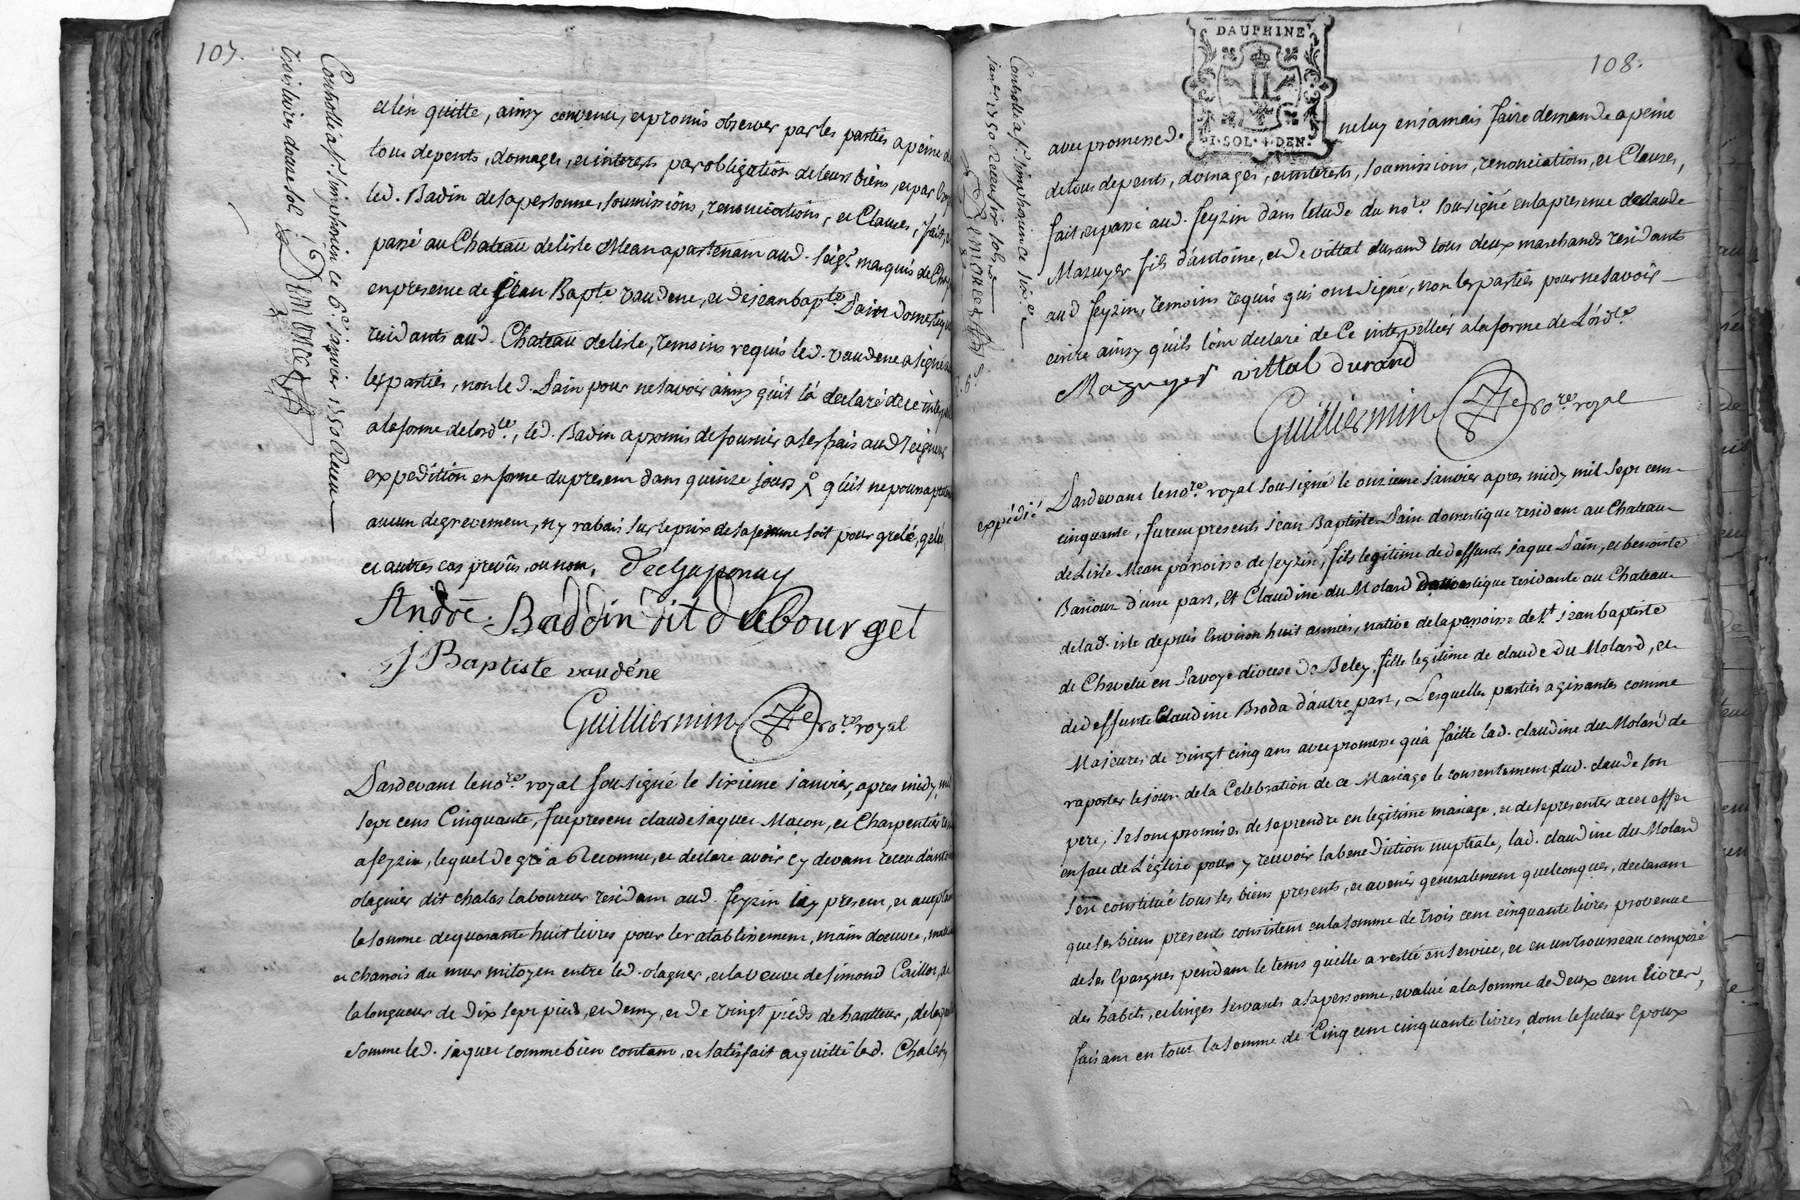 107.
Controllé a St. simphorin le 6e. janvier 1750 Receu
trois livres douze sols
et len quitte, ainsy convenu, et promis observer par les parties a peine de
tous depents, domages, et interests par obligation de leurs biens, et par
led. Badin de sa personne, soumissions, renonciations, et Clauses, fait,
passé au Chateau de lisle Mean apartenant aud. seigr. marquis de
en presence de Jean Bapte vaudene, et de jean bapte. Dain domestiques
residants aud. Chateau de lisle, temoins requis led. vaudene a signé
les parties, non led. Dain pour ne savoir ainsy quil la declaré de ce
a la forme de lordce., led. Badin a promis de fournir a ses frais aud. seigneur
expedition en forme du present dans quinze jours quil ne pourra pretendre
aucun degrevement, ny rabais sur le prix de sa ferme soit pour grelé, gelée,
et autres cas prevus, ou non, Dechaponay
André Baddin dit dubourget
J Baptiste vaudéne
Guilliermin no.re royal
Pardevant le no.re royal sousigné le sixieme janvier, apres midy, mil
sept cens Cinquante, fut present claude jaquer Maçon, et Charpentier
a feyzin, lequel de gré a Reconnu, et declare avoir cy devant receu dantoine
olagnier dit chalas laboureur resident aud. feyzin icy present, et acceptant
la somme de quarante huit livres pour le retablissement, main doeuvre,
et chanois du mur mitoyen entre led. olagner, et la veuve de simond Caillot, de
la longueur de dix sept pieds, et demy, et de vingt pieds de hautteur, de laquelle
somme led. jaquer comme bien contant, et satisfait a quitté led. Chalas
108.
DAUPHINÉ
1·SOL·4·DEN.
Controllé a St. simphorin ce
janer. 1750 Receu six sols
avec promesse de ne luy en jamais faire demande a peine
de tous depents, domages, et interests, soumissions, renonciations, et Clauses,
fait, et passé aud. feyzin dans letude du no.re sousigné en la presence de claude
Mazuyer fils d'antoine, et de vittal durand tous deux marchands residents
aud feyzin, temoins requis qui ont signé, non les parties pour ne savoir
ecrire ainsy quils lont declaré de Ce interpellées a la forme de L'ordce.
Mazuyer vittal durand
Guilliermin no.re royal
expédié
Pardevant le no.re royal sousigné le onzieme janvier apres midy mil sept cent
cinquante, furent presents jean Baptiste Dain domestique resident au Chateau
de Lisle Mean paroisse de feyzin, fils legitime de deffunts jaque Dain, et benoiste
Barioz d'une part, Et Claudine du Molard domestique residante au Chateau
de lad. isle depuis Environ huit années, native de la paroisse de St jean baptiste
de Chevelu en Savoye diocese de Beley, fille legitime de claude du Molard, et
de deffunte Claudine Broda dautre part, Lesquelles parties agissantes comme
Majeures de vingt cinq ans avec promesse qua faitte lad. claudine du Molard de
raporter le jour de la Celebration de ce Mariage le consentement dud. claude son
pere, se sont promises de se prendre en legitime mariage, et de se presenter a cet effet
en face de L'église pour y recevoir la benediction nuptiale, lad. claudine du Molard
sest constitué tous ses biens presents, et avenir generalement quelconques, declarant
que ses biens presents consistent en la somme de trois cent cinquante livres provenue
de ses Epargnes pendant le tems quelle a restée en service, et en un trousseau composé
des habits, et linges servants a sa personne, evalué a la somme de deux cent livres,
faisant en tout la somme de Cinq cent cinquante livres, dont le futur Epoux